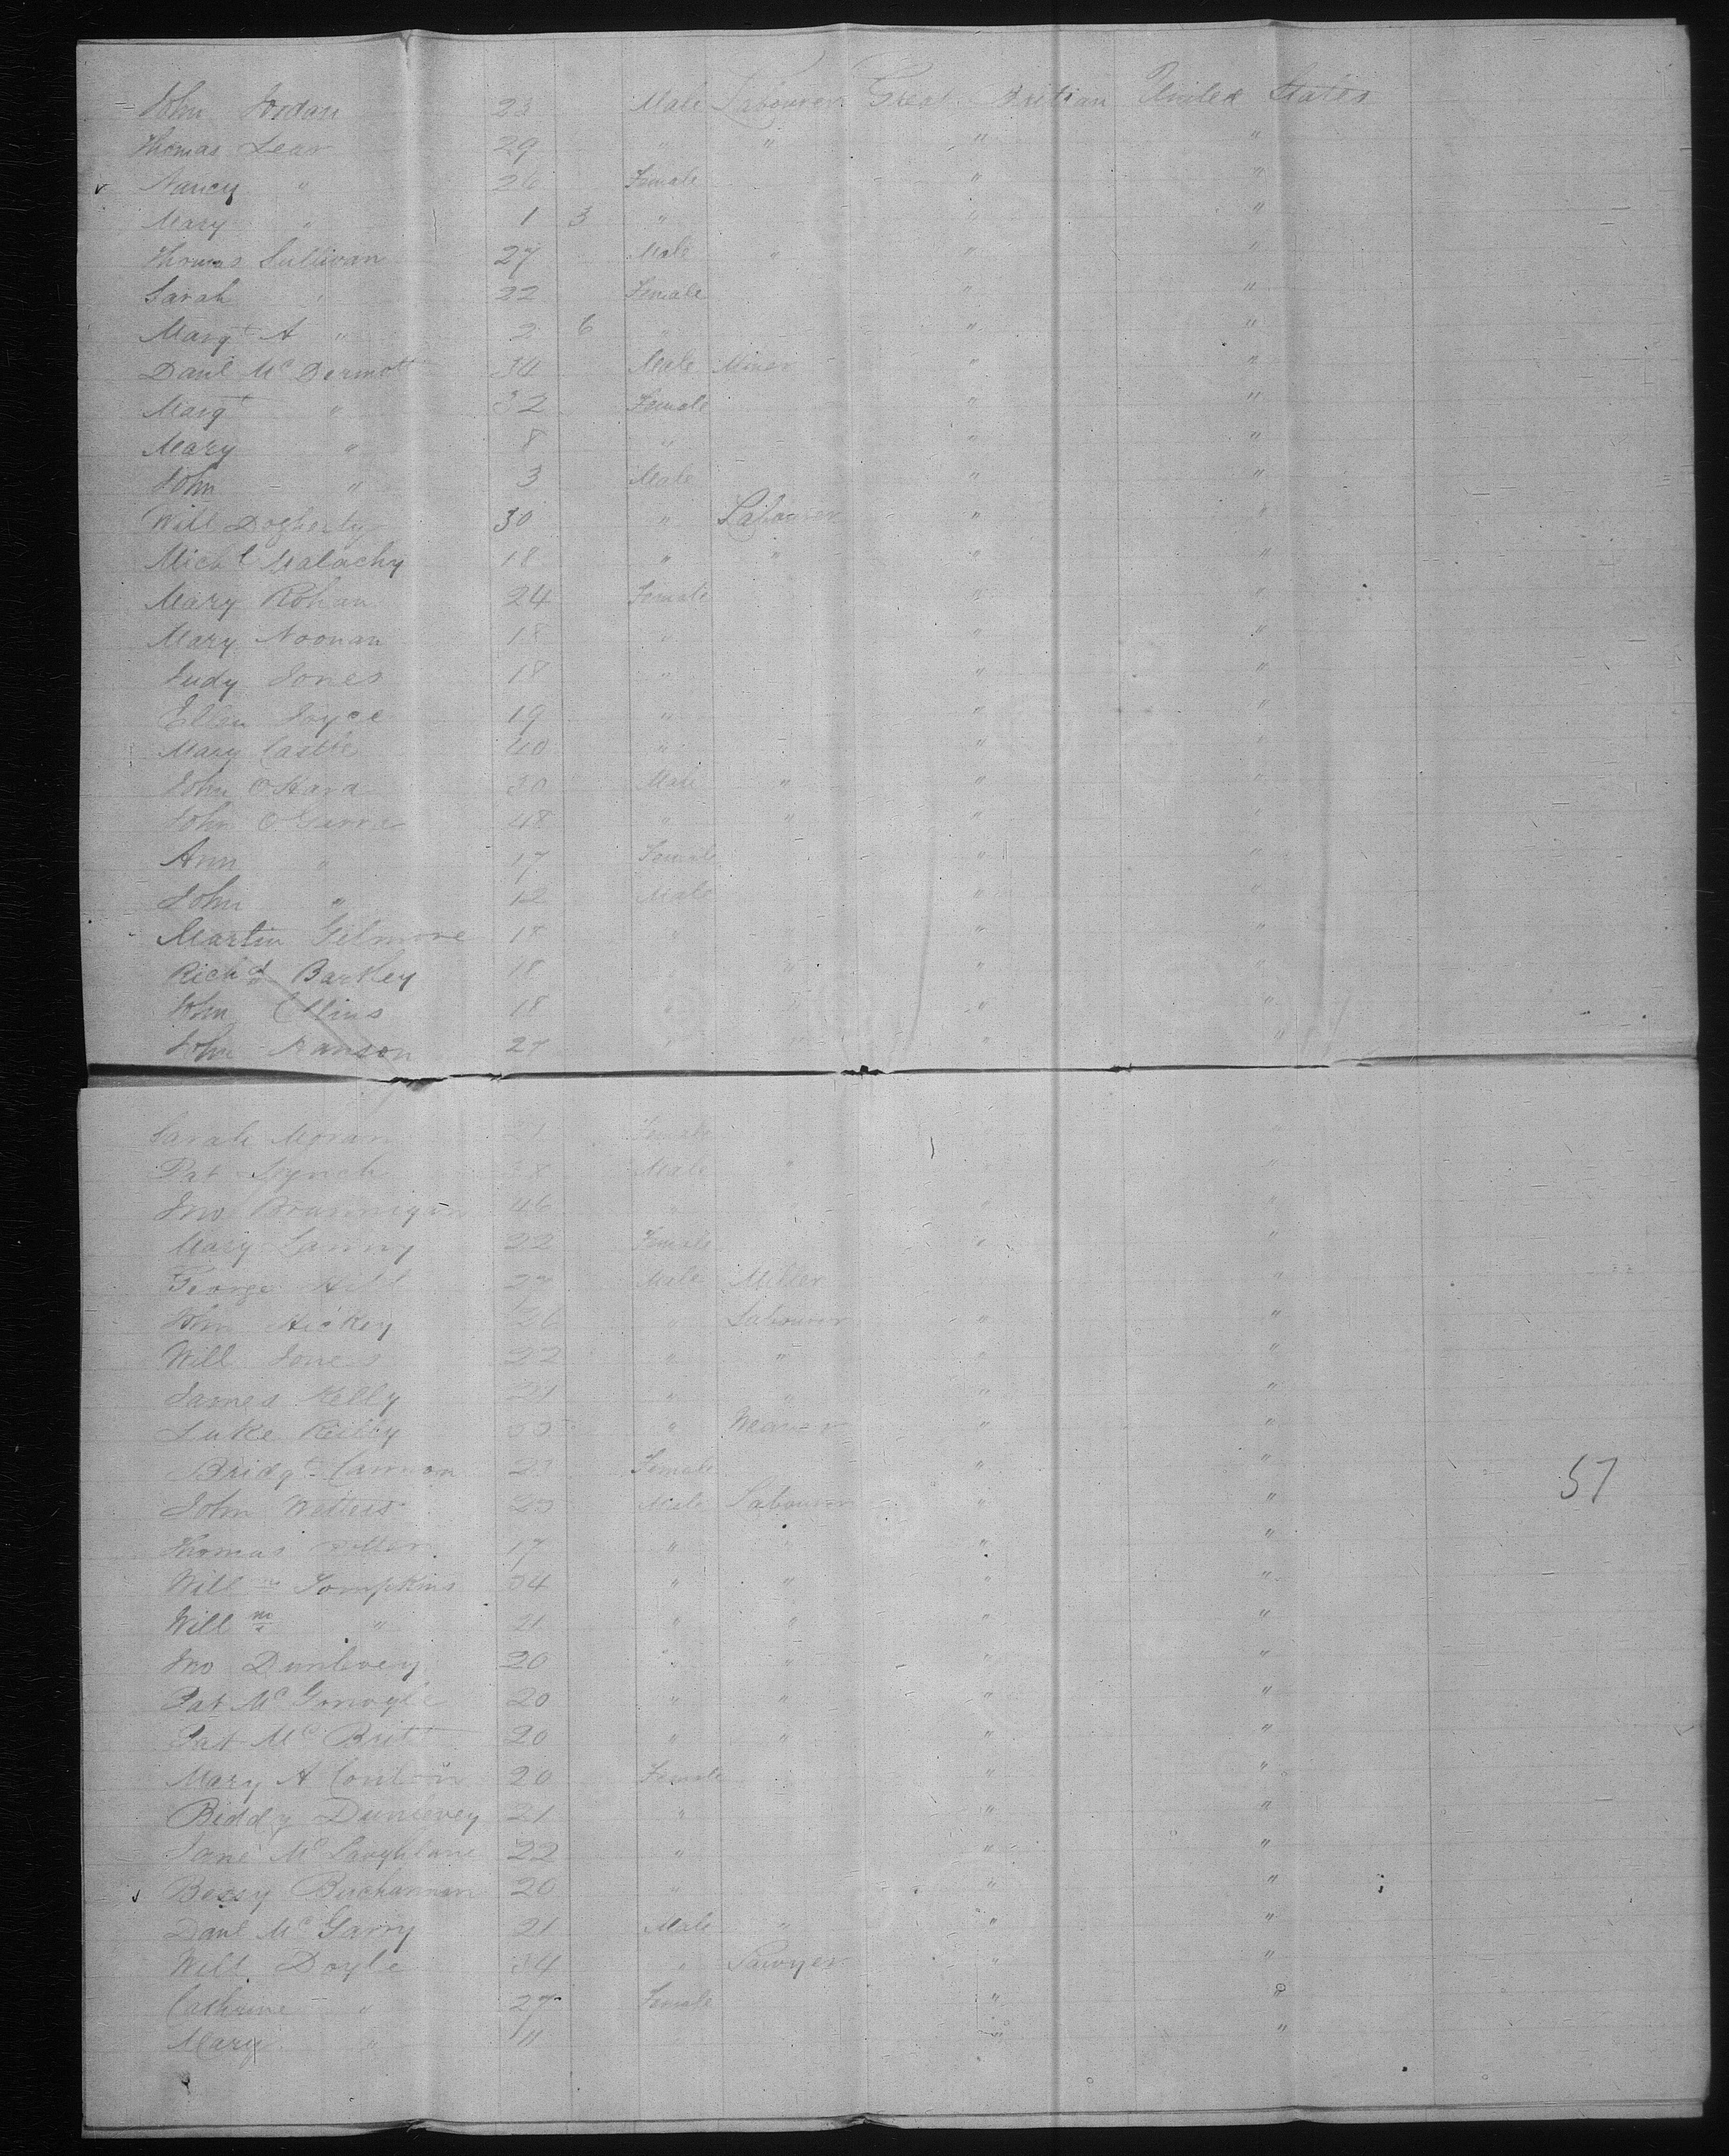 John Jordan 23 Male Labourer Great Britian United States
Thomas Lear 29 " " " "
Nancy " 26 Female " "
Mary " 1 3 " " "
Thomas Sullivan 27 Male " " "
Sarah " 22 Female " "
Margt A " 2 6 " " "
Danl McDermott 34 Male Miner " "
Margt " 32 Female " "
Mary " 8 " " "
John " 3 Male " "
Will Dogherty 30 " Labourer " "
Michl Malachy 18 " " " "
Mary Rohan 24 Female " "
Mary Noonan 18 " " "
Judy Jones 18 " " "
Ellen Joyce 19 " " "
Mary Castle 40 " " "
John O'Hara 30 Male " " "
John 48 " " " "
Ann " 17 Female " "
John " 12 Male " "
Martin Gilmore 18 " " " "
Richd Barkley 18 " " " "
John Collins 18 " " " "
John Ranson 27 " " " "
Sarah Moran 21 Female "
Pat Lynch 38 Male " "
Jno Brannigan 46 "
Mary Lanny 22 Female " "
George Hill Male Miller "
John Hickey 26 " Labourer " "
Will Jones 22 " " " "
James Kelly 21 " " " "
Luke Reilly " Weaver " "
Bridgt Cannon 23 Female " "
John Watters 25 Male Labourer " "
Thomas 17 " " " "
Willm Tompkins 34 " " " "
Willm " 21 " " " "
Jno Dunlevey 20 " " " "
Pat McGonogle 20 " " " "
Pat McBritt 20 " " " "
Mary A Conlon 20 Female " "
Biddy Dunlevey 21 " " "
Jane McLaughlane 22 " " "
Bessy Buchannan 20 " " "
Danl McGarry 21 Male " " "
Will Doyle 34 " Sawyer " "
Cathrine " 27 Female " "
Mary " 11 " "
57